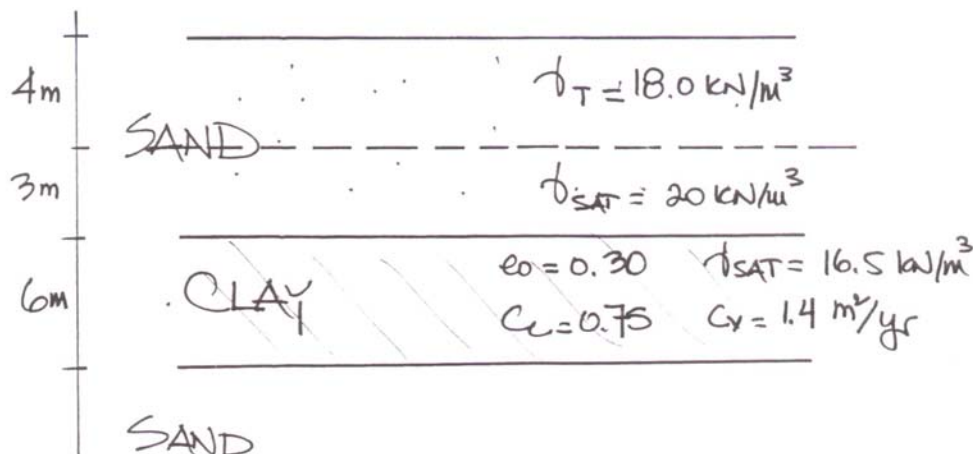 4m
γT = 18.0 KN/m³
SAND
3m
γSAT = 20 KN/m³
6m
CLAY
e0 = 0.30
γSAT = 16.5 kN/m³
Cc = 0.75
Cv = 1.4 m²/yr
SAND